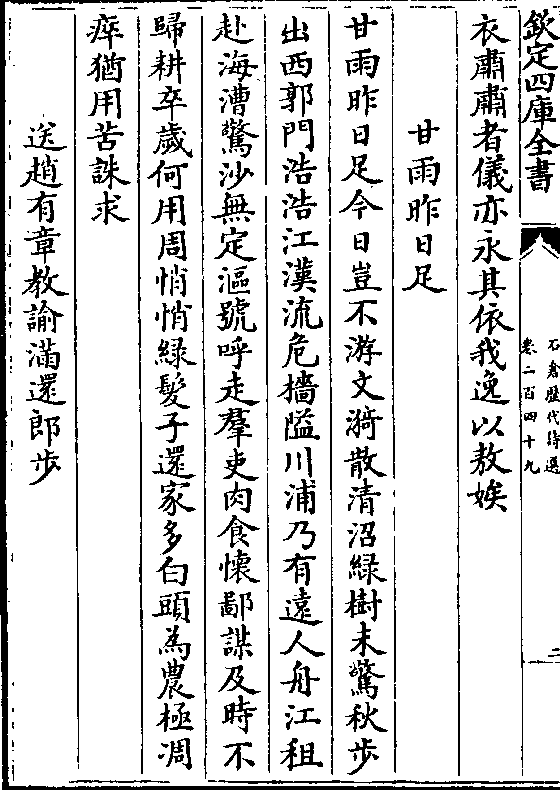 欽定四庫全書
石倉歷代詩選
卷二百四十九
二
衣肅肅者儀亦永其依我逸以敖娭
甘雨昨日足
甘雨昨日足今日豈不游文漪散清沼綠樹未驚秋步
出西郭門浩浩江漢流危檣隘川浦乃有遠人舟江租
赴海漕驚沙無定漚號呼走羣吏肉食懷鄙謀及時不
歸耕卒歲何用周悄悄綠髮子還家多白頭為農極凋
瘁猶用苦誅求
送趙有章教諭滿還郎步